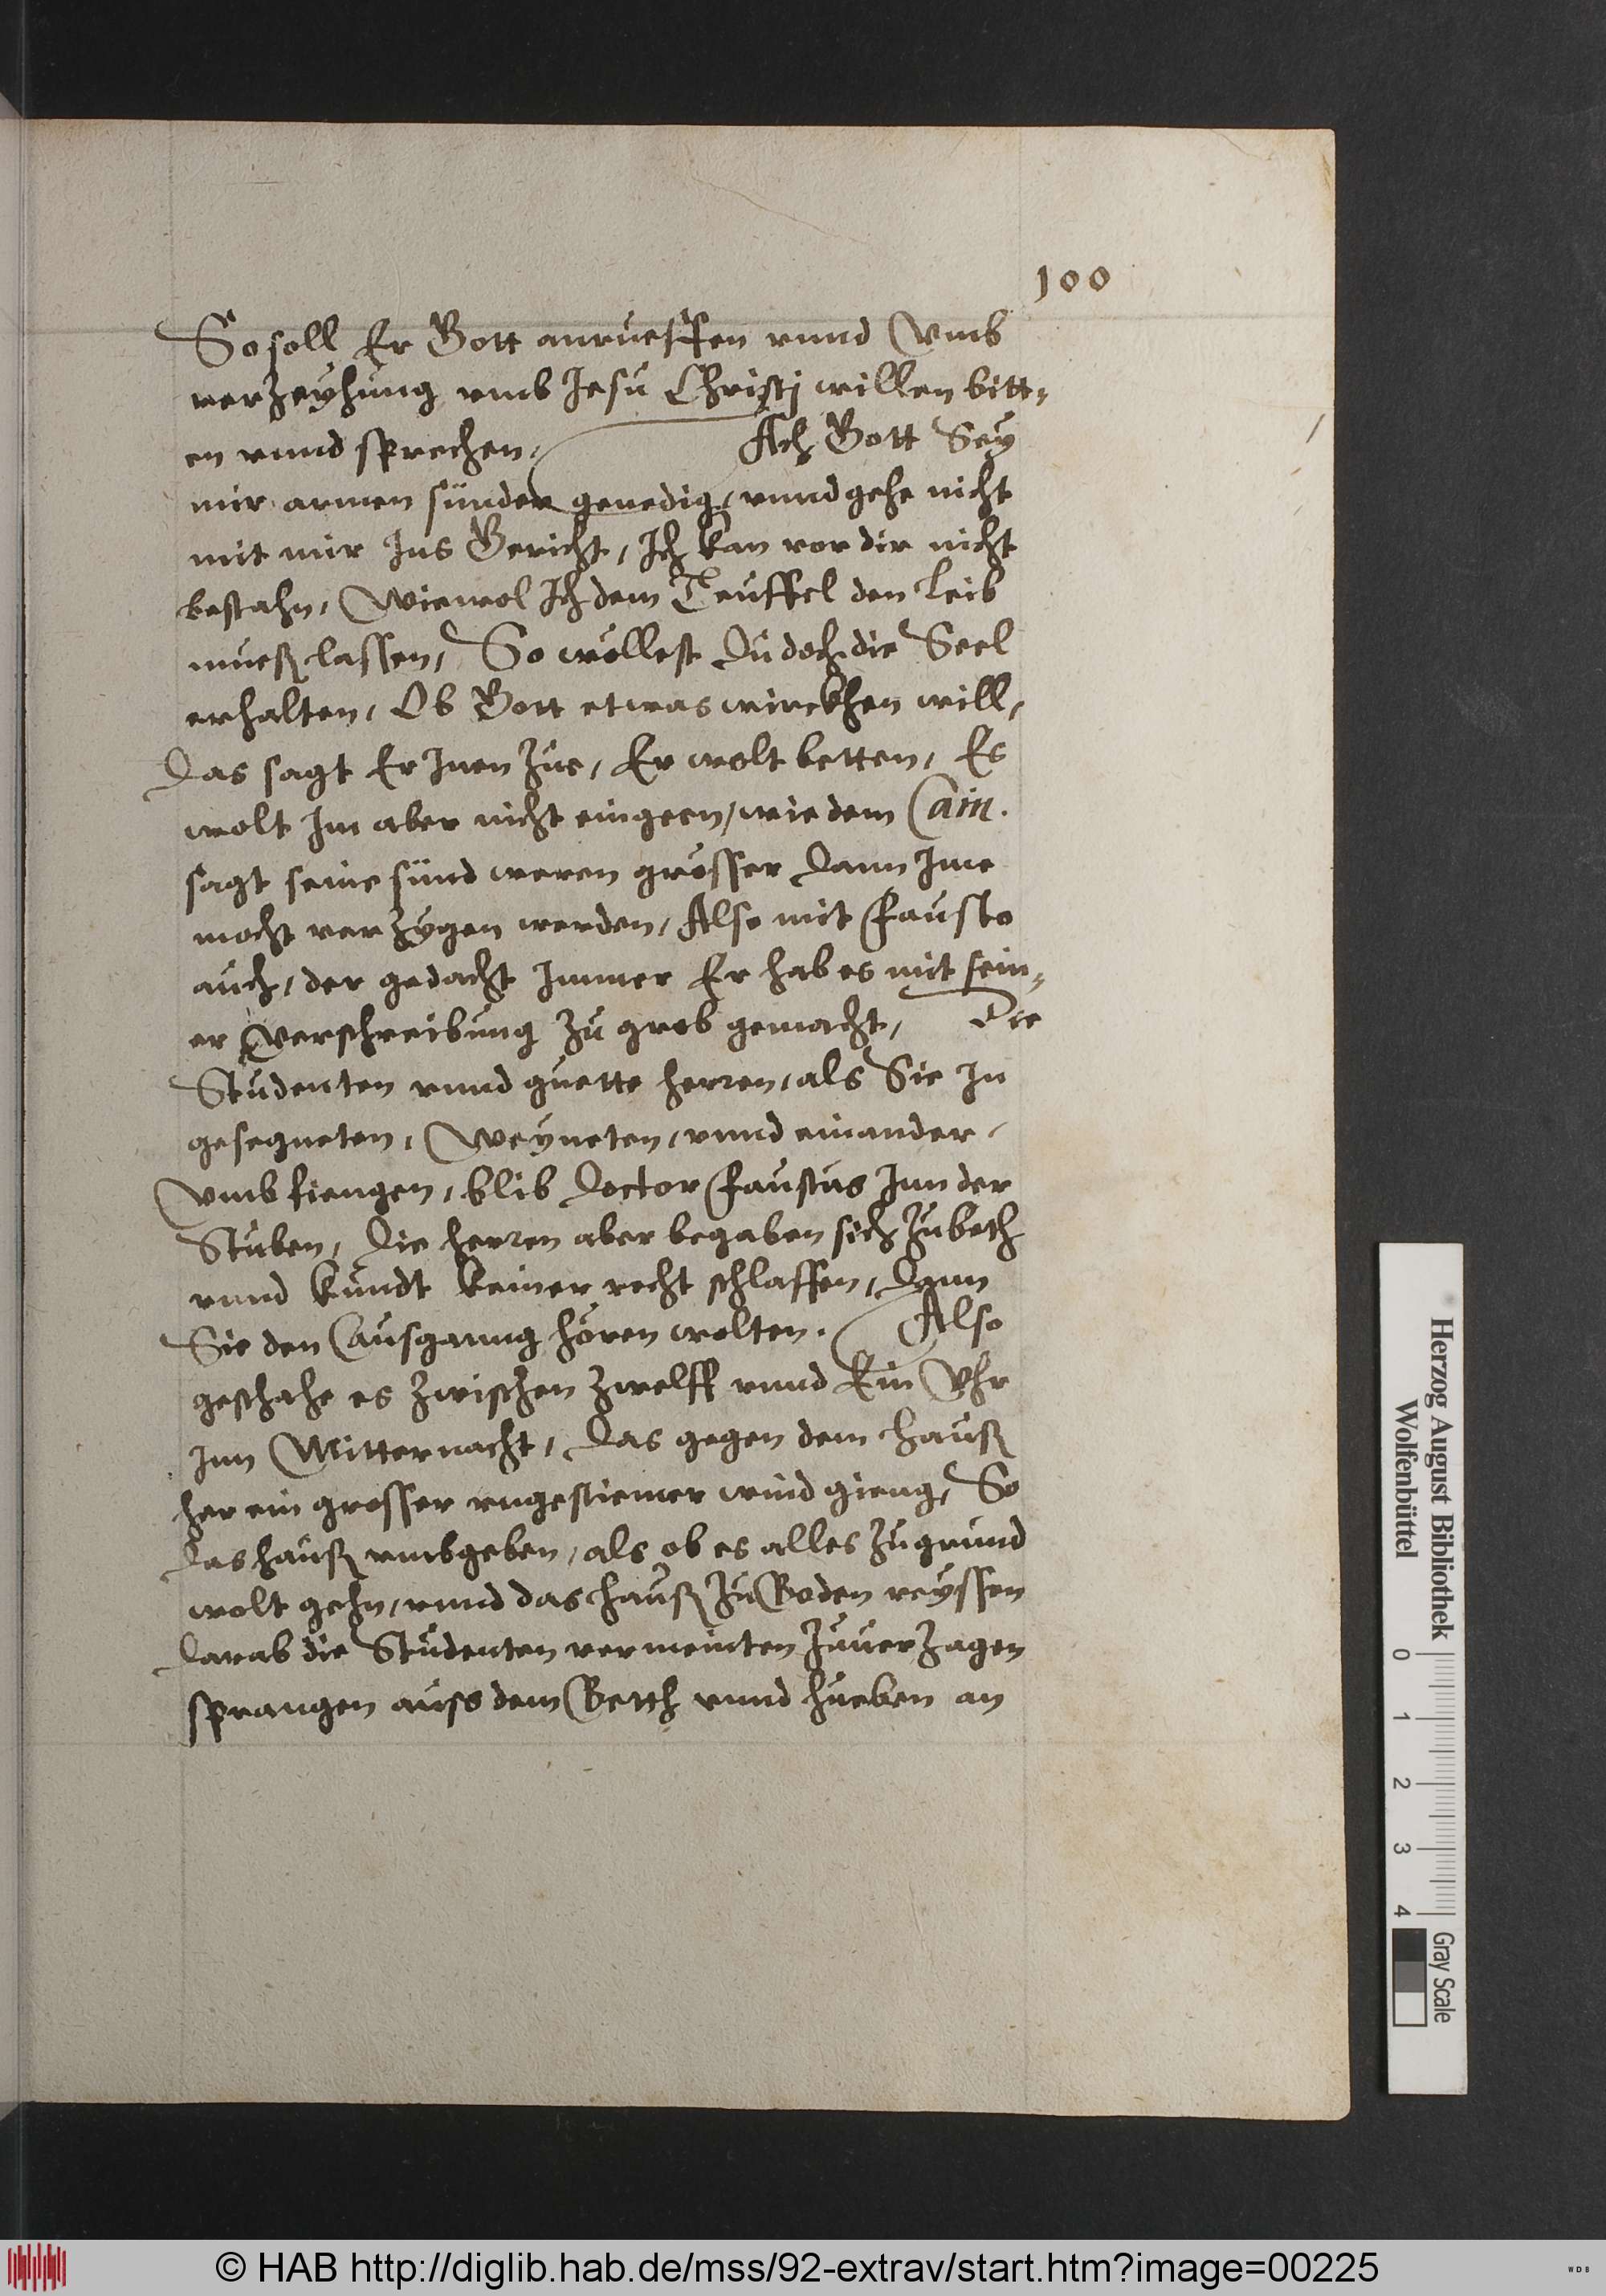 100
So soll Er Gott anrueffen vnnd Vmb
verzeyhung vmb Jesu Christj willen bitt=
en vnnd sprechen, Ach Gott Sey
mir armen sünder genedig, vnnd gehe nicht
mit mir Ins Gericht, Ich kan vor dir nicht
bestahn, Wiewol Ich dem Teuffel den Leib
mueß lassen, So wöllest Du doch die Seel
erhalten, Ob Gott etwas wirckhen will,
Das sagt Er Inen Zue, Er wolt betten, Es
wolt Im aber nicht eingeen, wie dem Cain.
sagt seine sünd weren grösser Dann Ime
mocht verzygen werden, Also mit Fausto
auch, der gedacht Immer Er hab es mit sein=
er Verschreibung zu grob gemacht, Die
Studenten vnnd guette herren, als Sie In
gesegneten, Weyneten, vnnd einander,
Vmbfiengen, blib Doctor Faustus Inn der
Stuben, Die herren aber begaben sich Zubeth
vnnd kundt keiner recht schlaffen, Dann
Sie den Ausganng hören wolten. Also
geschahe es Zwischen Zwelff vnnd Ein Vhr
Inn Mitternacht, Das gegen dem hauß
her ein grosser vngestiemer wind gieng, So
Das hauß vmbgeben, als ob es alles Zu grund
wolt gehn, vnnd das hauß Zu Boden reyssen
Darab die Studenten vermeinten Zuuerzagen
sprangen auss dem Betth vnnd hueben an
Herzog August Bibliothek
Wolfenbüttel
0 1 2 3 4
Gray Scale
© HAB http://diglib.hab.de/mss/92-extrav/start.htm?image=00225
WDB